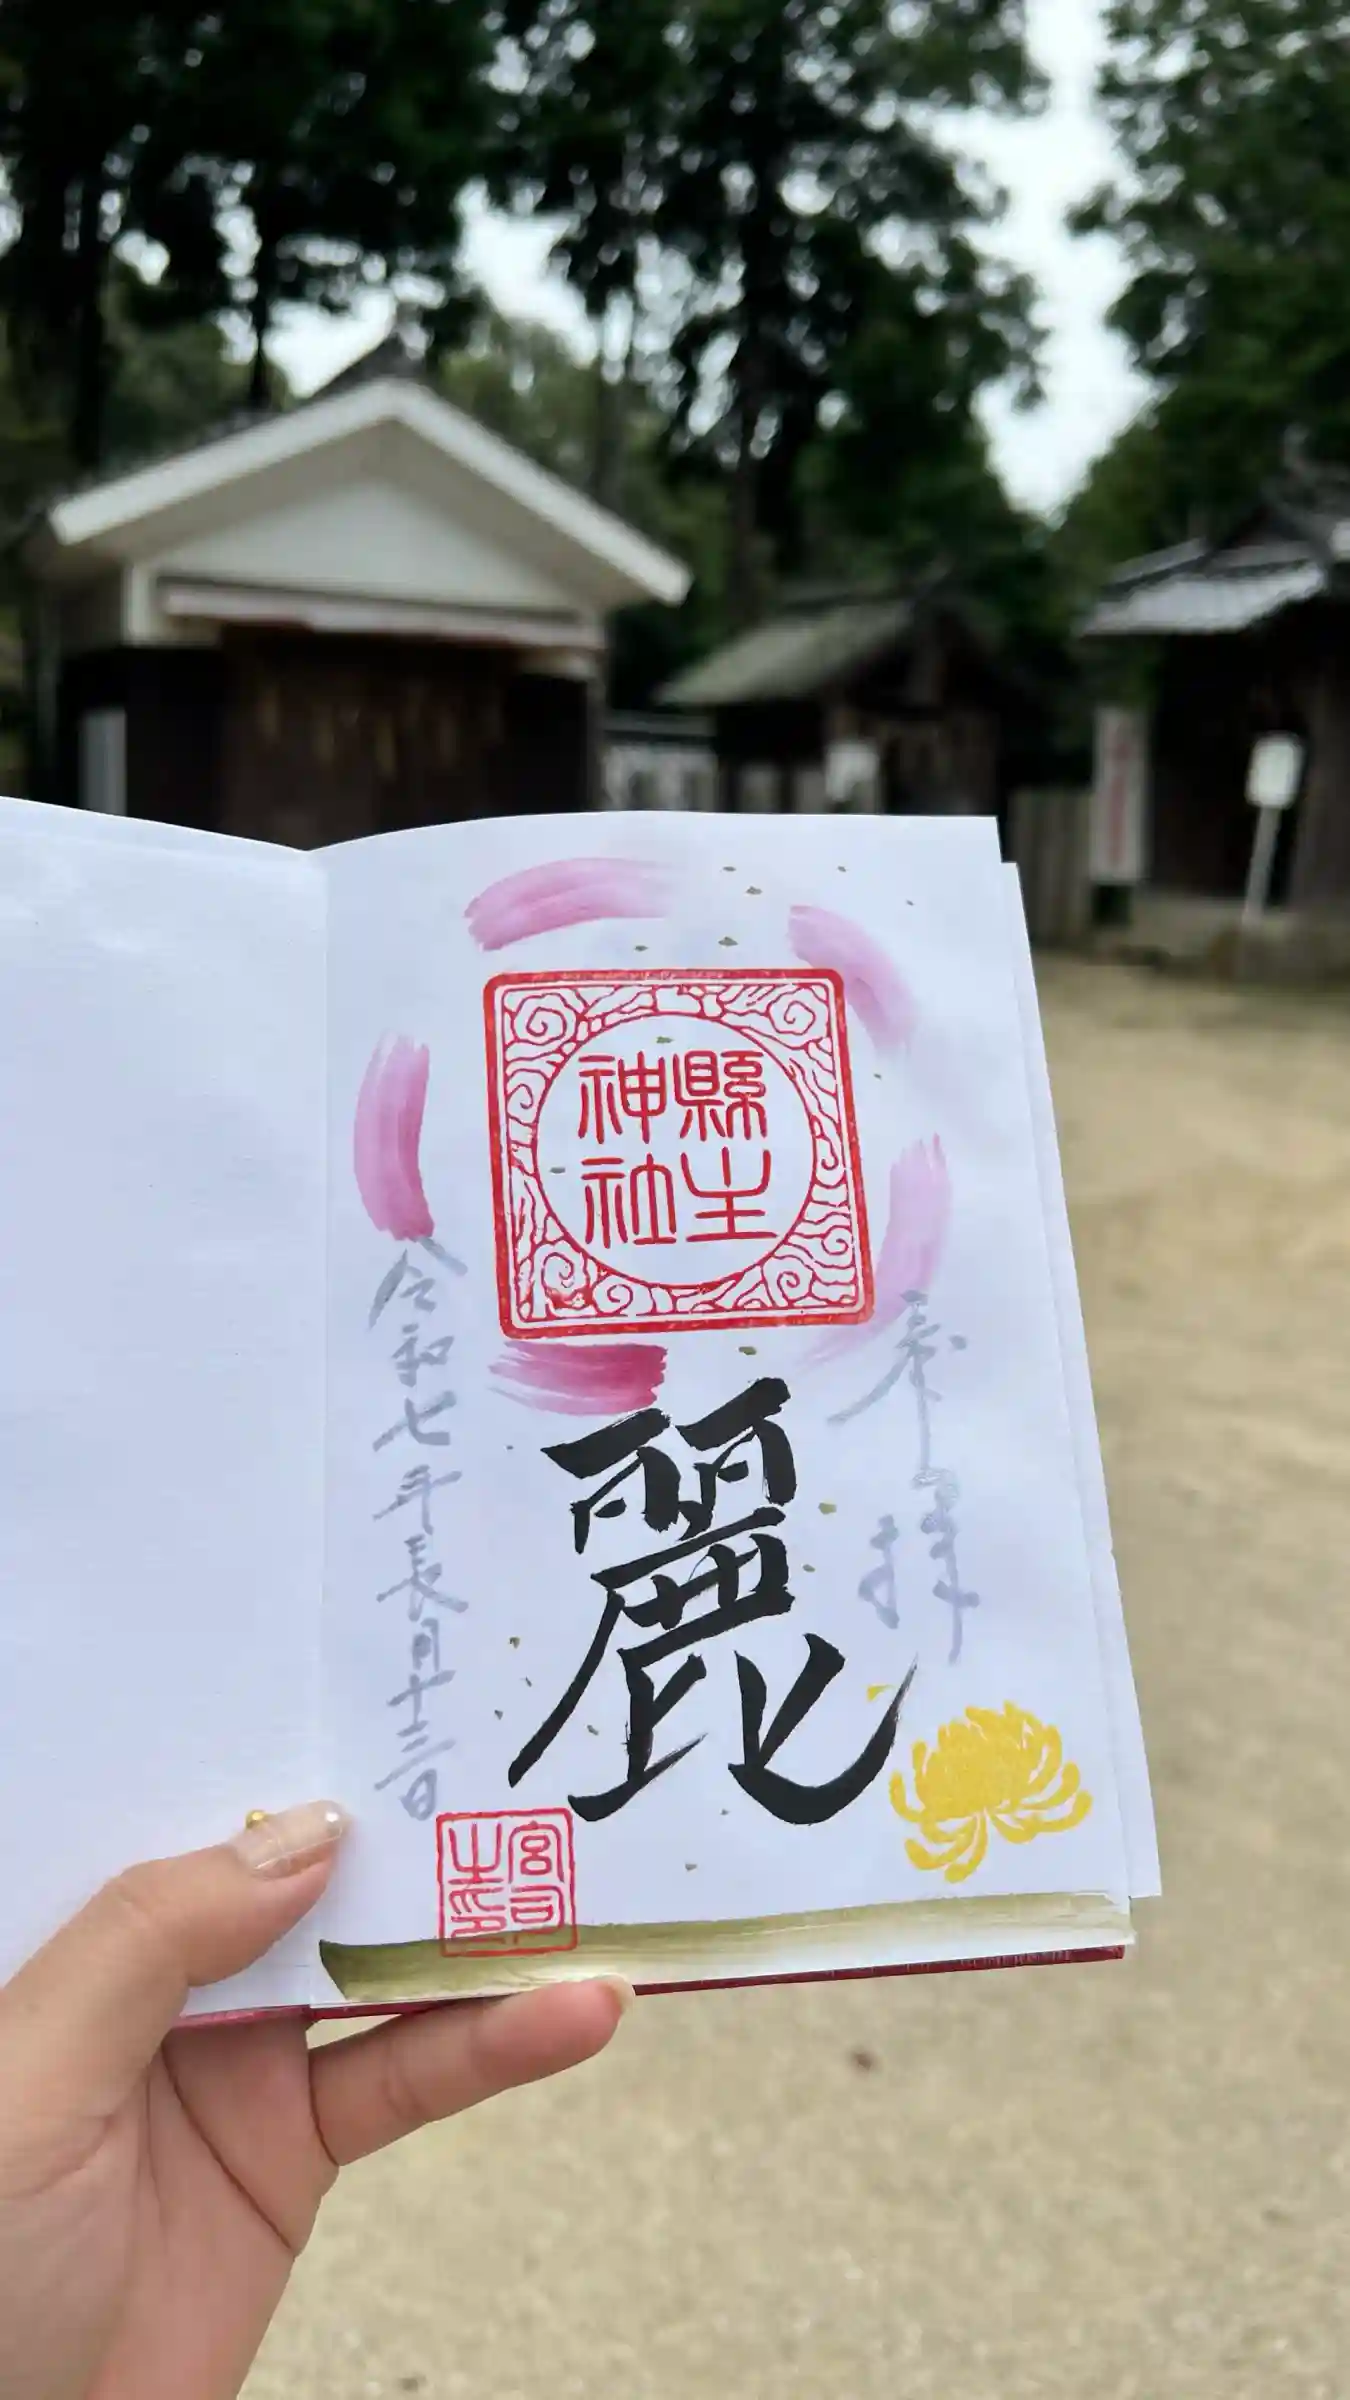 奉拝
縣主
神社
麗
令和七年長月十三日
宮司
之印